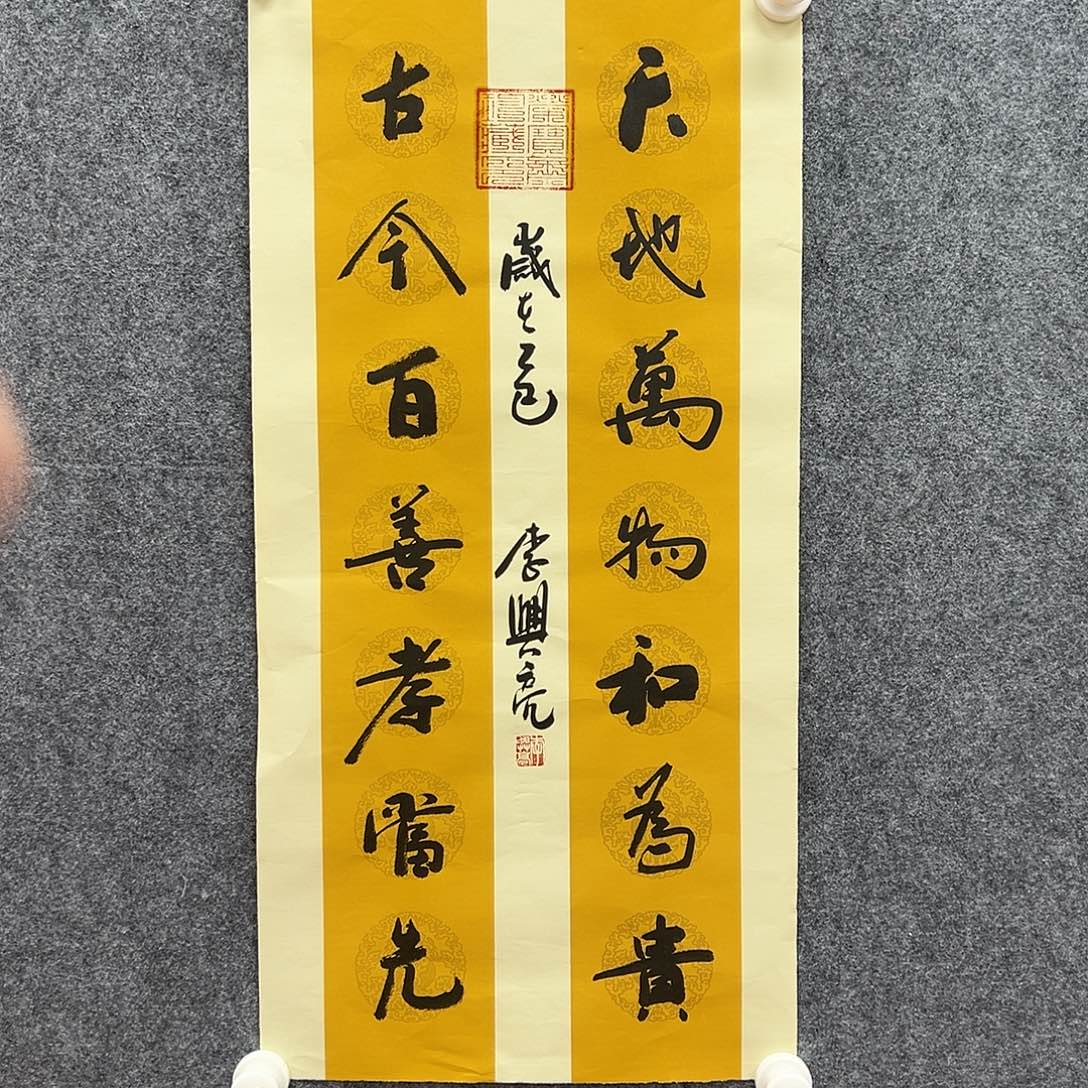 天地萬物和為貴
歲在乙巳 李興亮
古今百善孝當先